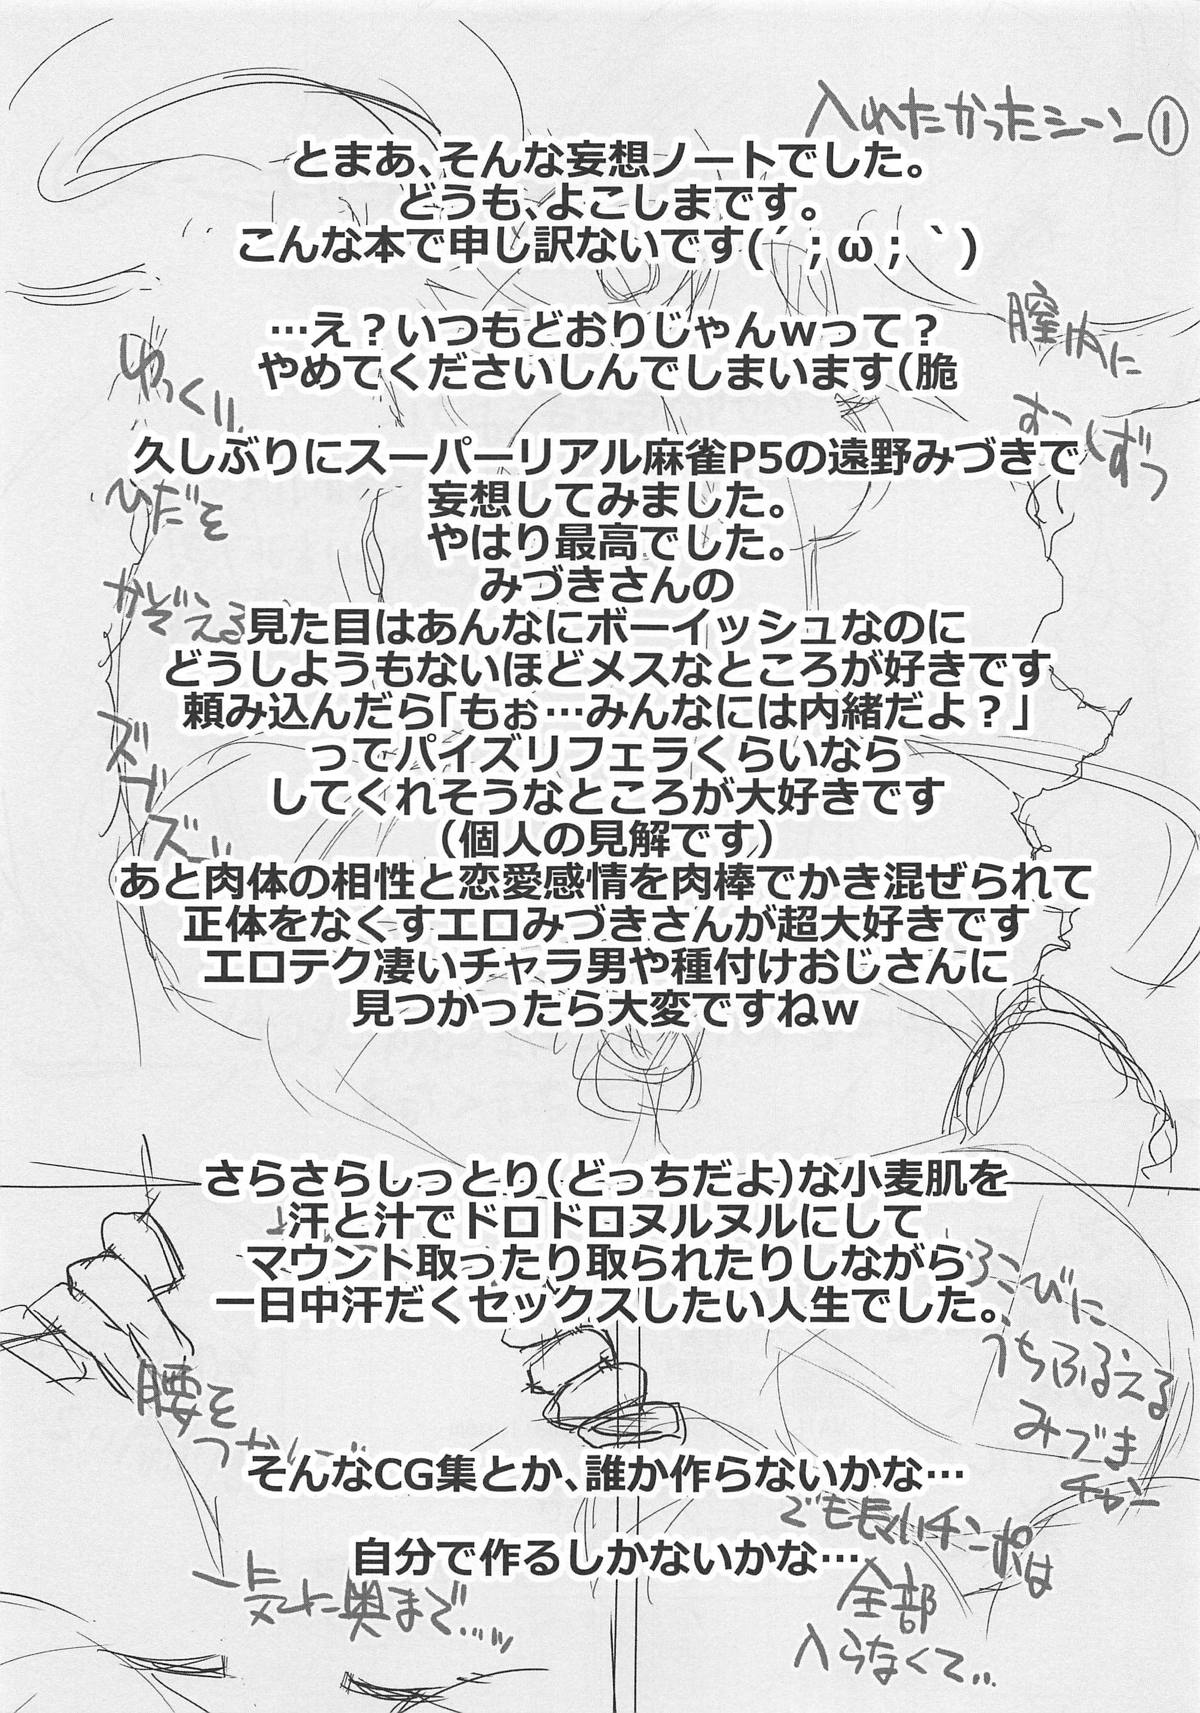 入れたかったシーン①
とまあ、そんな妄想ノートでした。
どうも、よこしまです。
こんな本で申し訳ないです(´；ω；｀)
…え？いつもどおりじゃんwって？
やめてくださいしんでしまいます(脆
膣内に
ゆっくり
久しぶりにスーパーリアル麻雀P5の遠野みづきで
妄想してみました。
やはり最高でした。
みづきさんの
見た目はあんなにボーイッシュなのに
どうしようもないほどメスなところが好きです
頼み込んだら「もぉ…みんなには内緒だよ？」
ってパイズリフェラくらいなら
してくれそうなところが大好きです
（個人の見解です）
あと肉体の相性と恋愛感情を肉棒でかき混ぜられて
正体をなくすエロみづきさんが超大好きです
エロテク凄いチャラ男や種付けおじさんに
見つかったら大変ですねw
ひだを
かぞえる
ズズズ…
さらさらしっとり（どっちだよ）な小麦肌を
汗と汁でドロドロヌルヌルにして
マウント取ったり取られたりしながら
一日中汗だくセックスしたい人生でした。
よろこびに
うちふるえる
みづき
チャン
腰を
つかんで
そんなCG集とか、誰か作らないかな…
自分で作るしかないかな…
一気に奥まで…ッ
でも長いチンポは
全部
入らなくて…